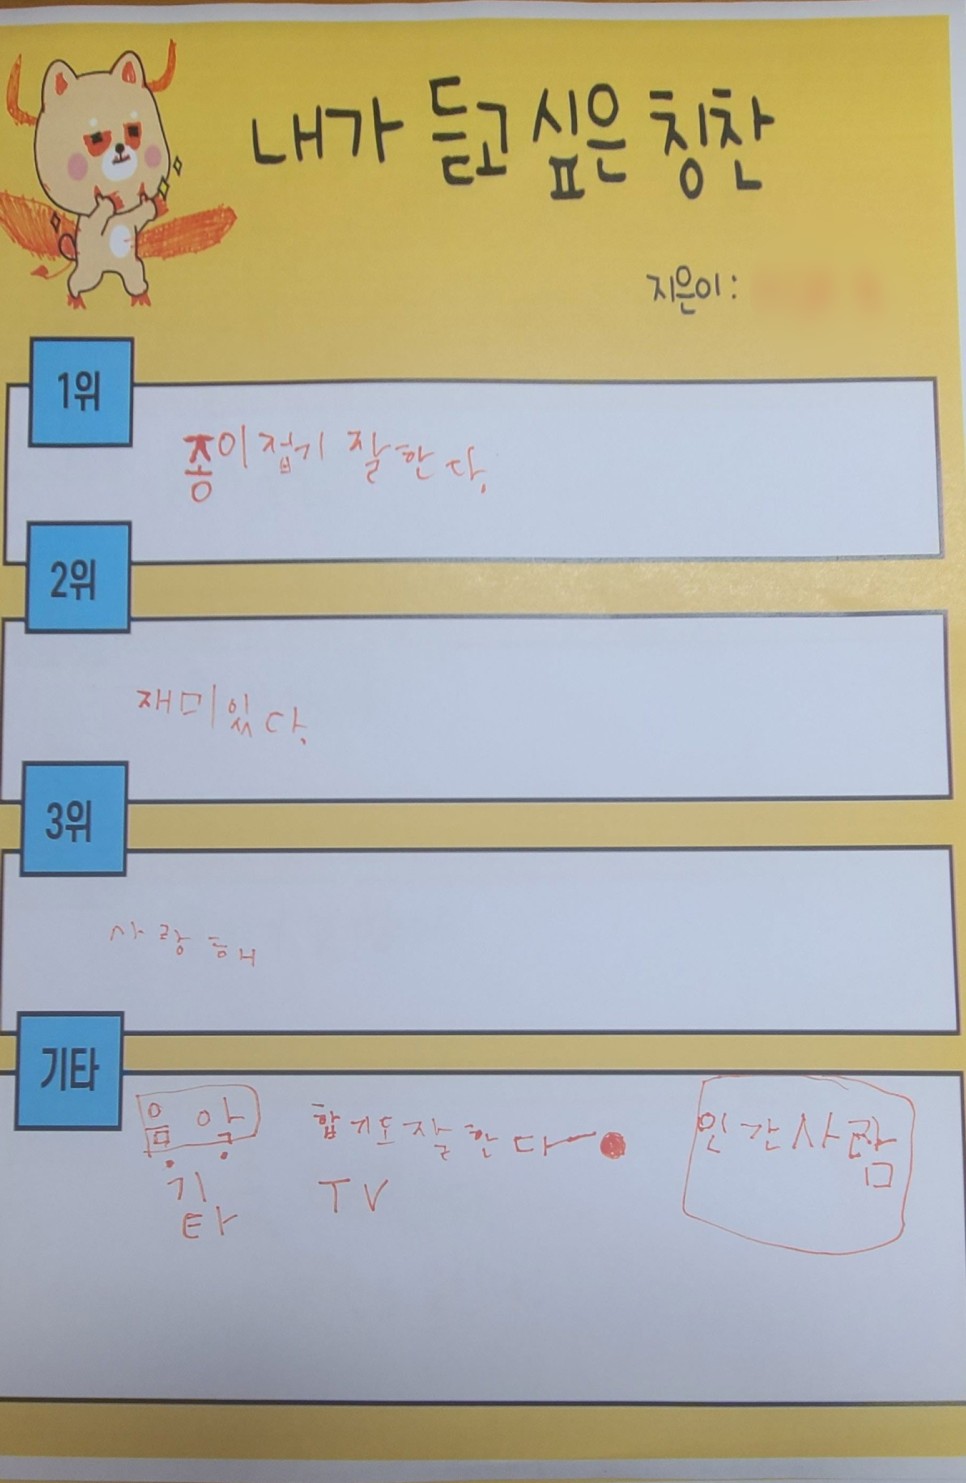 내가 듣고 싶은 칭찬
지은이:
1위
종이접기 잘한다.
2위
재미있다.
3위
사랑해
기타
음악 합기도 잘한다 인간사람
기타 TV